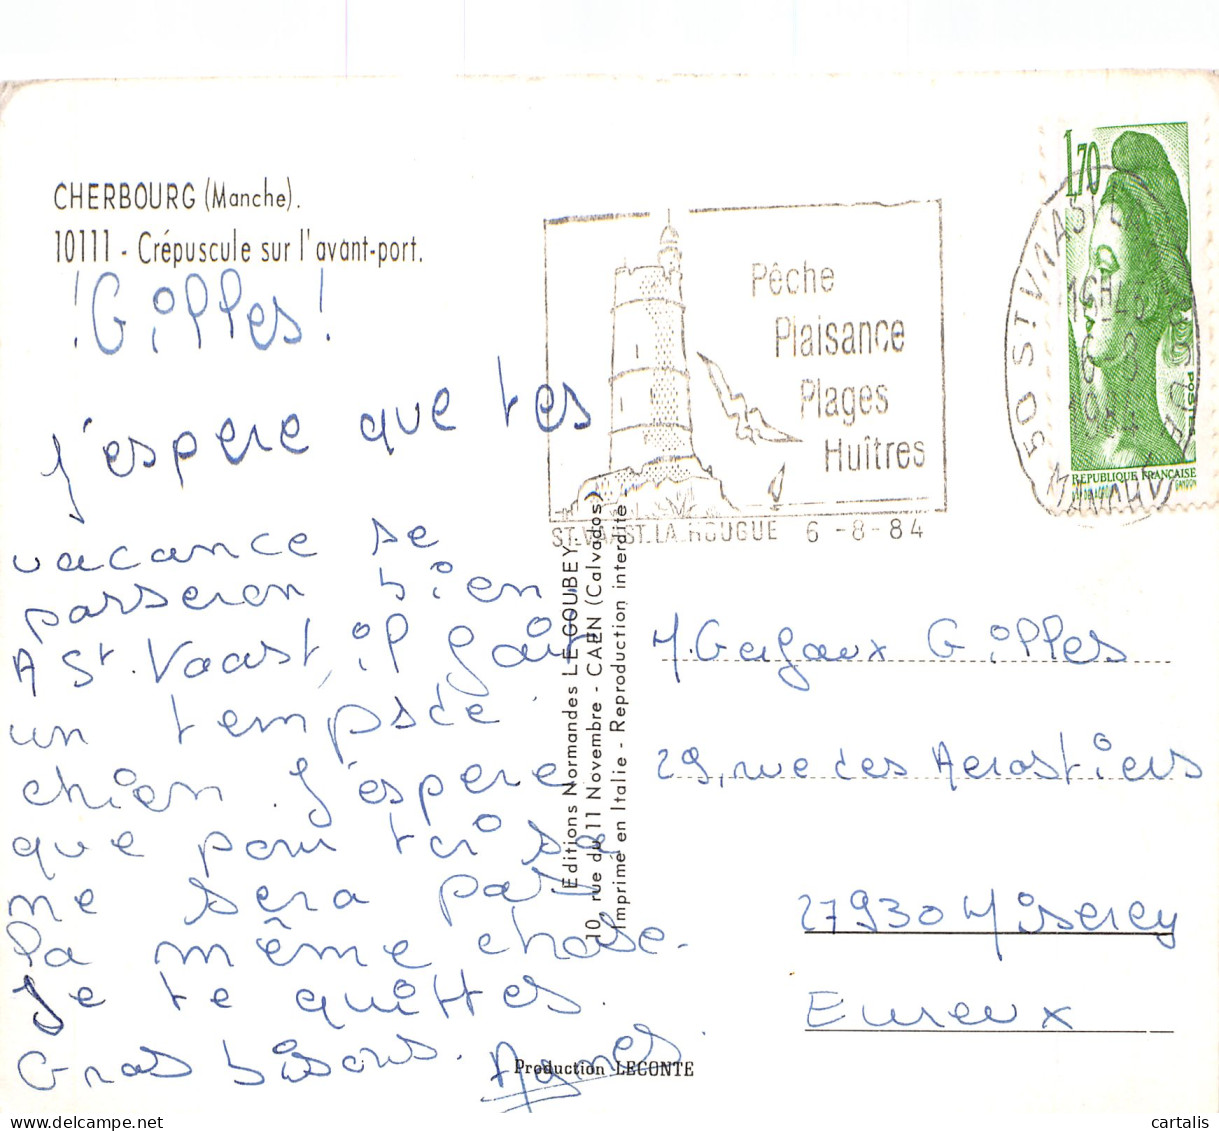 CHERBOURG (Manche).
10111 - Crépuscule sur l'avant-port.
!Gilles!
J'espere que tes
vacance se
passeron bien
A St. Vaast, il fait
un temps de
chien. J'espere
que pour toi sa
ne sera pas
la même chose.
Je te quittes.
Gras bisous.
Agnes.
Pêche
Plaisance
Plages
Huîtres
ST.VAAST.LA.HOUGUE 6-8-84
1,70
POSTES
REPUBLIQUE FRANÇAISE
GANDON
50 ST VAAST
6-8
1984
MANCHE
Editions Normandes LE GOUBEY
10, rue du 11 Novembre - CAEN (Calvados)
Imprimé en Italie - Reproduction interdite
M. Gilles
29, rue des Aerostiers
27930 Miserey
Evreux
Production LECONTE
cartalis